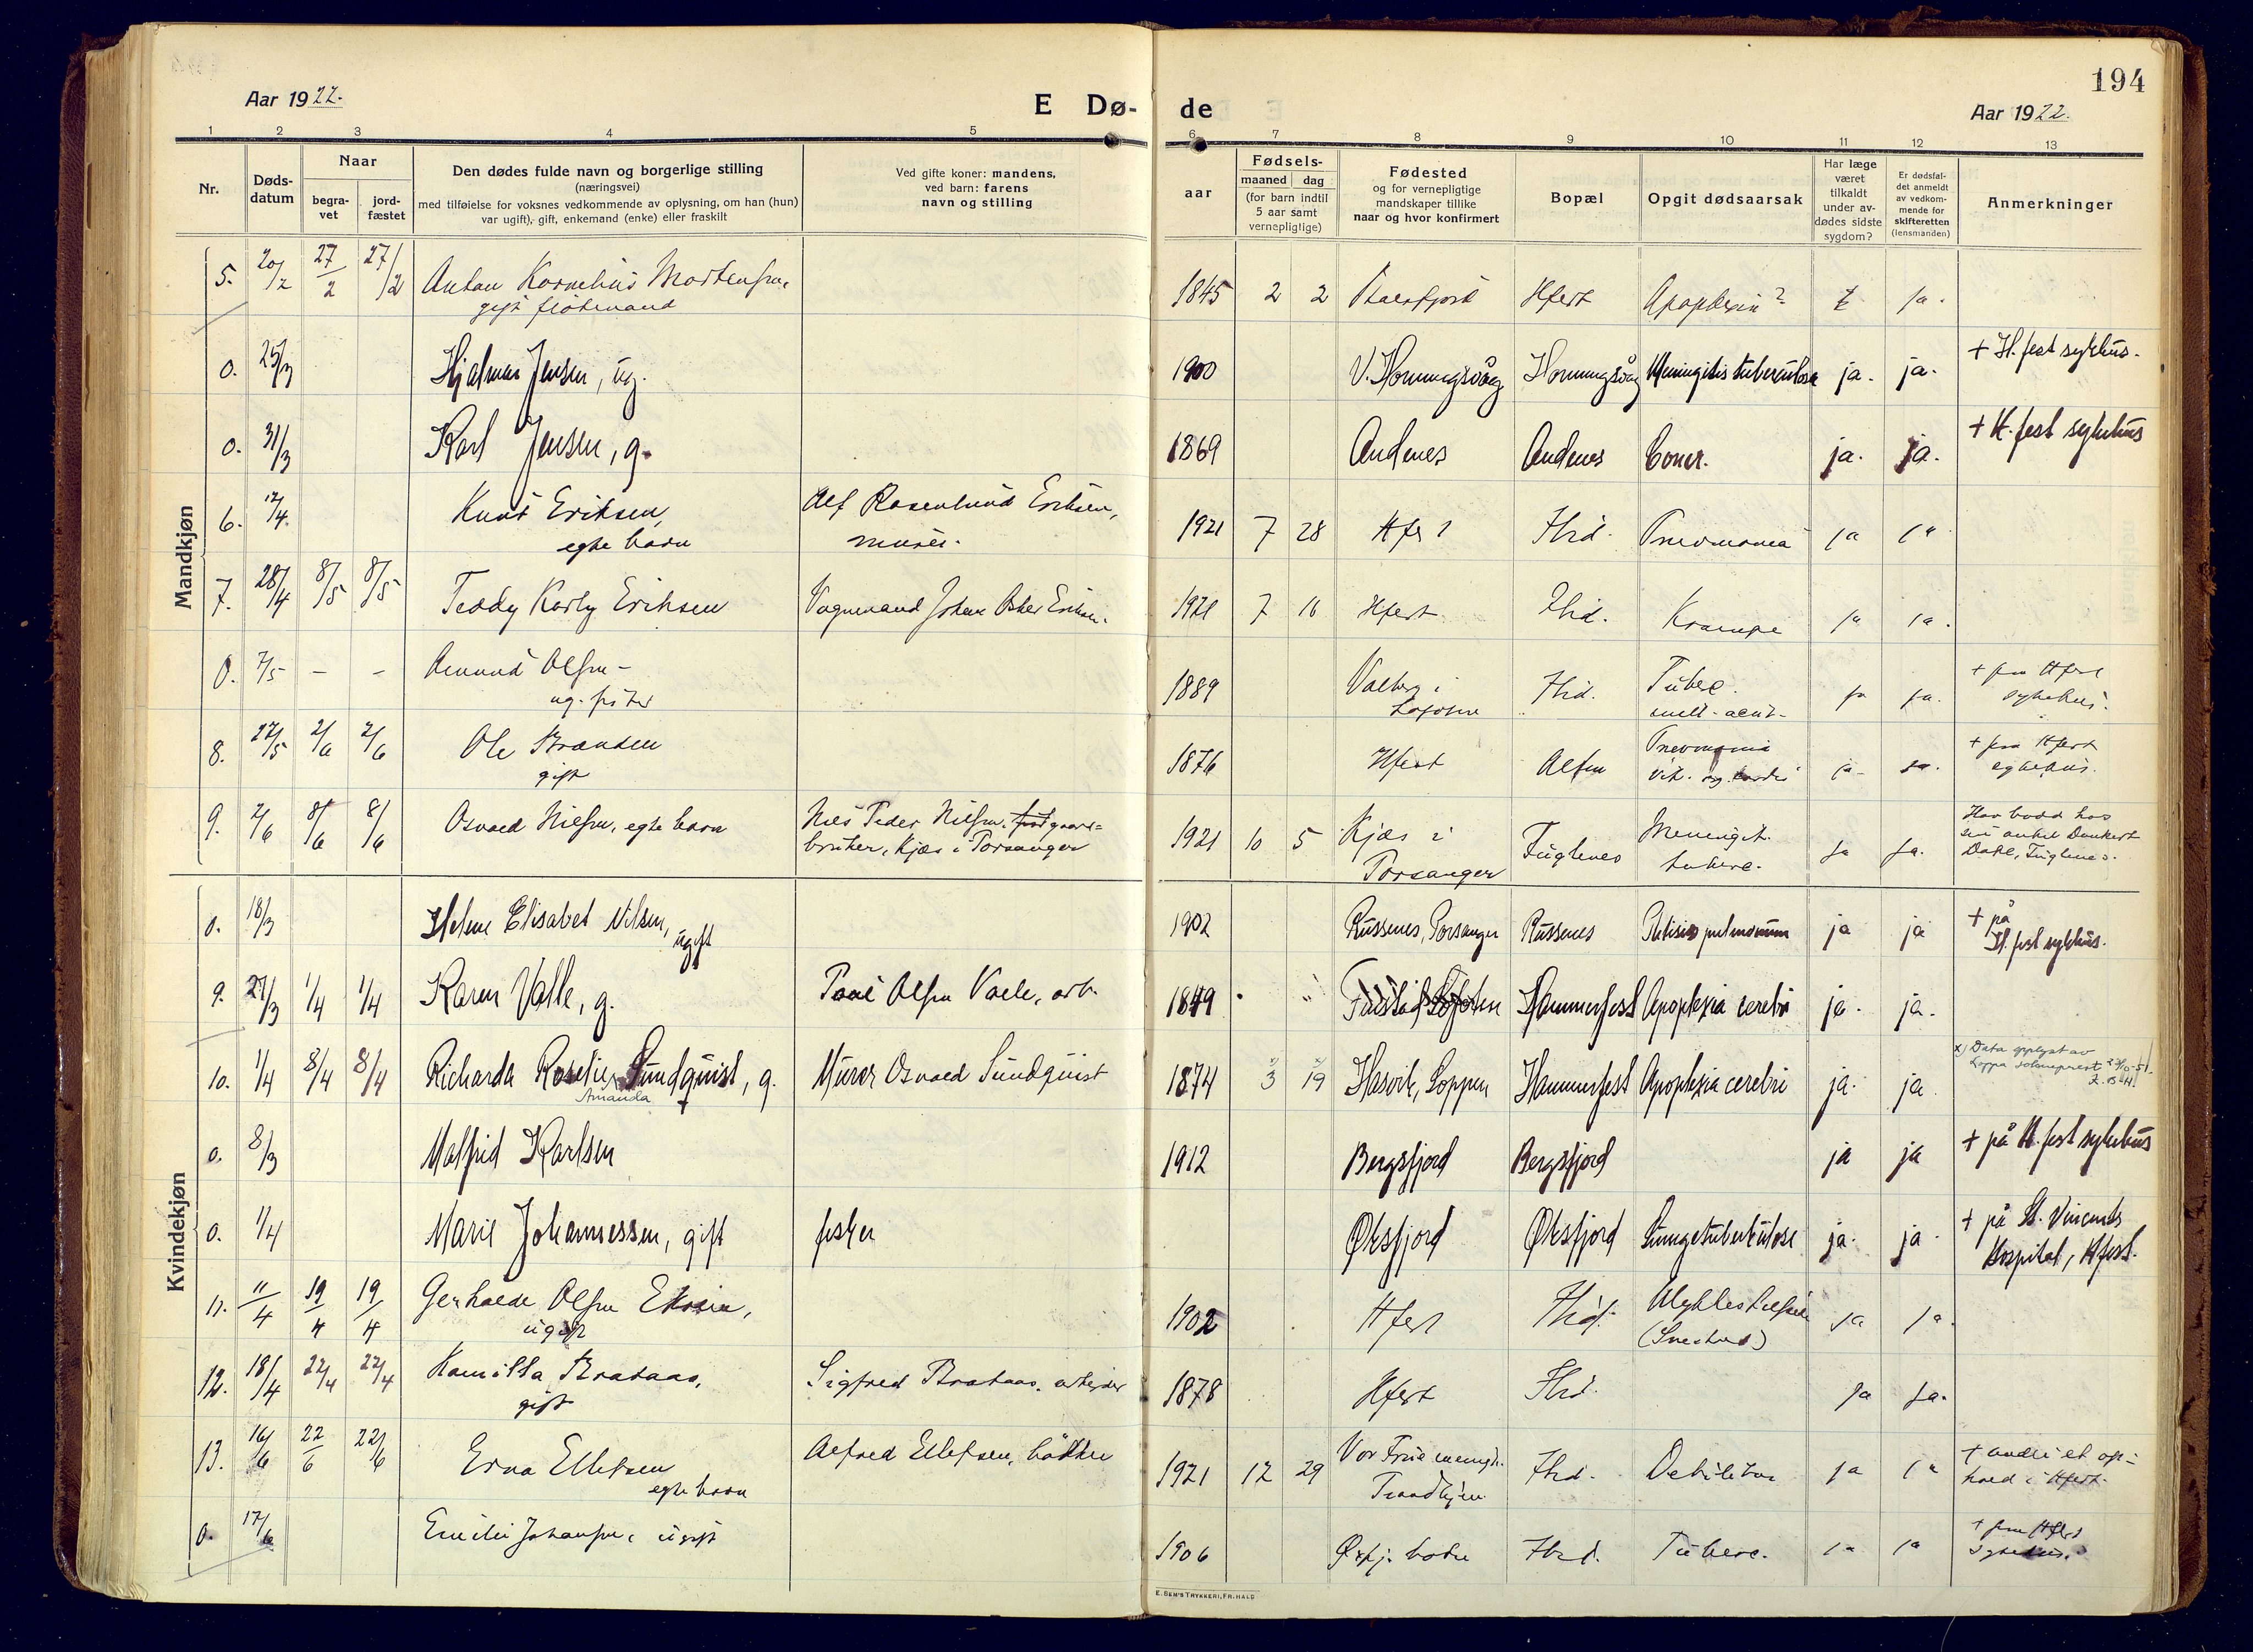 194
Aar 1922.
E Dø-
de
Aar 1922.
1 2 3 4 5 6 7 8 9 10 11 12 13
Nr.
Døds-
datum
Naar
begra-
vet
jord-
fæstet
Den dødes fulde navn og borgerlige stilling
(næringsvei)
med tilføielse for voksnes vedkommende av oplysning, om han (hun)
var ugift), gift, enkemand (enke) eller fraskilt
Ved gifte koner: mandens,
ved barn: farens
navn og stilling
aar
Fødsels-
maaned dag
(for barn indtil
5 aar samt
vernepligtige)
Fødested
og for vernepligtige
mandskaper tillike
naar og hvor konfirmert
Bopæl
Opgit dødsaarsak
Har læge
været
tilkaldt
under av-
dødes sidste
sygdom?
Er dødsfal-
det anmeldt
av vedkom-
mende for
skifteretten
(lensmanden)
Anmerkninger
Mandkjøn
5. 20/2 27/2 27/2 Anton Kornelius Mortensen,
gift fløtmand
1845 2 2 Hfest Apoplexia? ja.
0. 25/3 Hjalmar Jensen, ug.
1900 V. Honningsvåg Honningsvåg Meningitis tuberculosa ja. ja. + H.fest sykhus.
0. 31/3 Karl Jensen, g.
1869 Andenes Andenes ja. ja. + H.fest sykehus
6. 17/4. Knut Eriksen,
egte barn
Alf Rosenlund Eriksen,
murer.
1921 7 28 Hfest Ibid. Pnevmonia ja ja
7. 28/4 8/5 8/5 Teddy Karly Eriksen Vognmand Johan Oskar Eriksen.
1921 7 16 Hfest Ibid. Krampe ja ja.
0. 7/5 - - Amund Olsen -
ug.
1889 Valberg i
Lofoten
Ibid. Tuberc.
ja ja. + paa Hfest
sykehus.
8. 27/5 2/6 2/6 Ole
gift
1876 Hfest Alten Pnevmonia
ja- ja. + paa Hfest
sykehus.
9. 2/6 8/6 8/6 Osvald Nilsen, egte barn
Nils Peder Nilsen, gaard=
bruker, Kjæs i Porsanger
1921 10 5 Kjæs i
Porsanger
Fuglenes Meningit.
tuberc.
ja ja. Har bodd hos
sin onkel Dankert
Dahl, Fuglenes.
Kvindekjøn
0. 18/3 Helene Elisabet Nilsen,
ugift
1902 Russenes, Porsanger Russenes Phtisis pulmonum ja ja + på
H.fest sykhus.
9. 27/3 1/4 1/4 Karen Valle, g. Paul Olsen Valle, arb.
1849 Lofoten Hammerfest Apoplexia cerebri ja. ja.
10. 1/4 8/4 8/4 Richarda Roselie Sundquist, g.
Amanda
Murer Osvald Sundquist
1874 x) 3 x) 19 Hasvik, Loppen Hammerfest Apoplexia cerebri ja. ja x) Data opplyst av
Loppa sokneprest
0. 8/3 Malfrid Karlsen
1912 Bergsfjord Bergsfjord ja ja + på H.fest sykehus
0. 1/4 Marie Johannessen, gift fisker
Øksfjord Øksfjord Lungetuberkulose ja. ja. + på St. Vincents
Hospital, Hfest.
11. 11/4 19/4 19/4 Gerhalde Olsen
ugift
1902 Hfest Ibid. Ulykkestilfælde
ja ja.
12. 18/4 22/4 22/4 Kamilla Brataas,
gift
Sigfred Brataas, arbeider
1878 Hfest Ibid. ja ja.
13. 16/6 22/6 22/6 Erna Ellefsen
egte barn
Alfred Ellefsen, bøkker
1921 12 29 Vor Frue menigh.
Trondhjem
Ibid. Debilitas ja ja + under et op-
hold i Hfest.
0. 17/6 Emilie Johansen, ugift
1906 Øksfj. botn Ibid. Tuberc. ja ja + paa Hfest
sykehus.
E. SEM'S TRYKKERI, FR.HALD